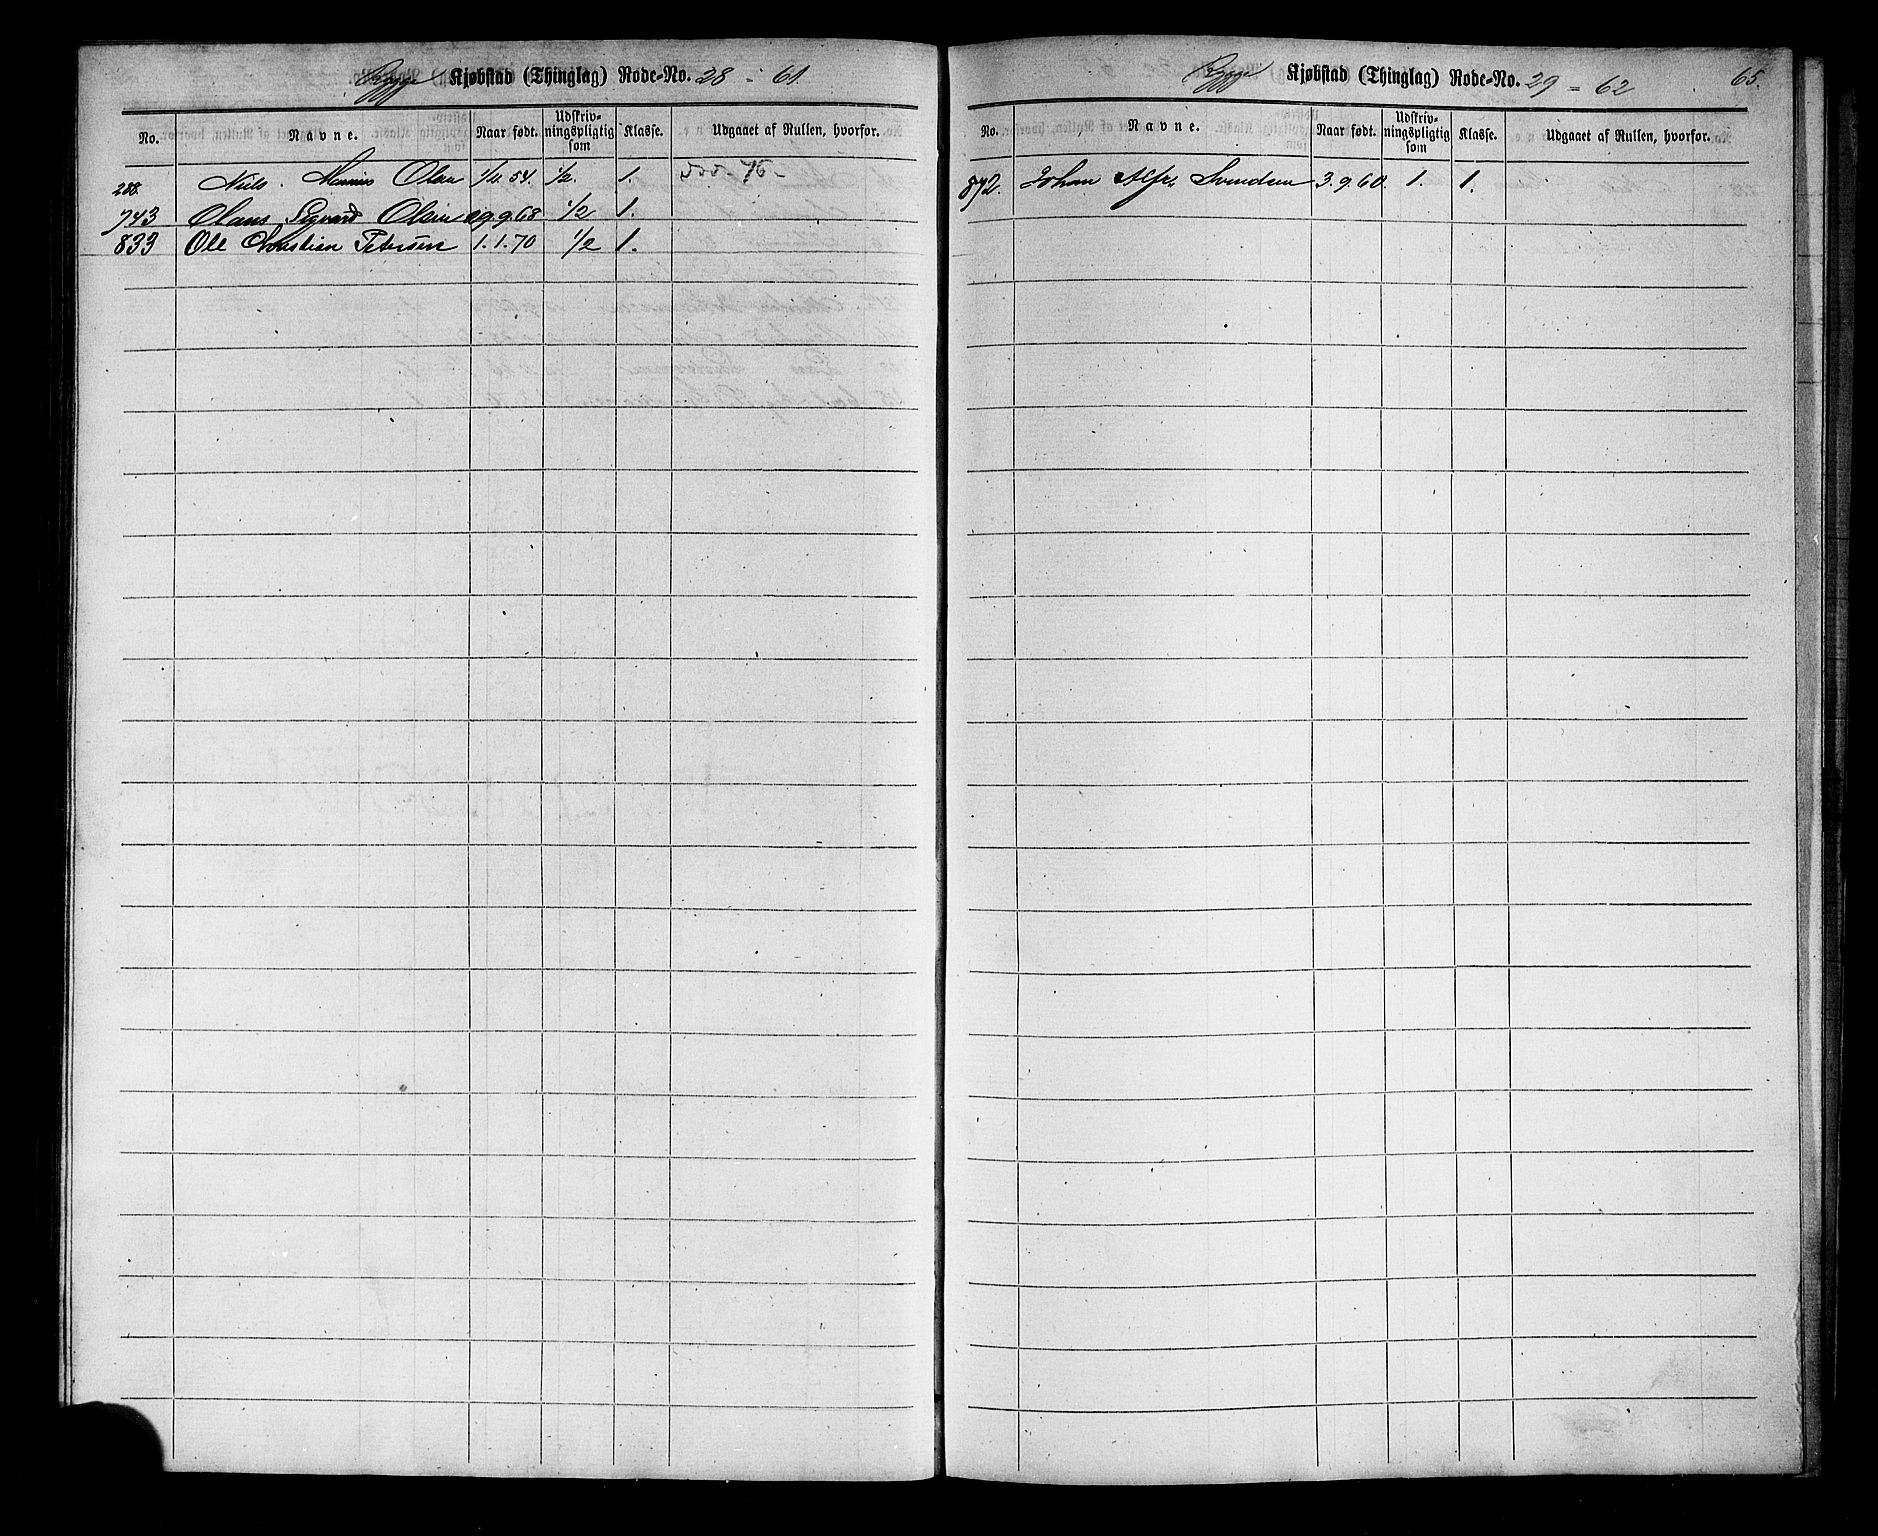 Rygge Kjøbstad (Thinglag) Rode-No. 28 = 61
No. Navne. Naar født. Udskriv-ningspligtig som Klasse. Udgaaet af Rullen, hvorfor.
288. Nils Olsen 1/11 54. 1/2. 1. 76
743 Olaus Sigvard Olsen 29.9.68 1/2 1.
833 Ole Christian Petersen 1.1.70 1/2 1.
Rygge Kjøbstad (Thinglag) Rode-No. 29 = 62 65.
No. Navne. Naar født. Udskriv-ningspligtig som Klasse. Udgaaet af Rullen, hvorfor.
872. Johan Alfr. Svendsen 3.9.60. 1. 1.